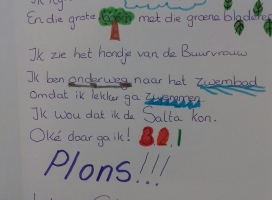 En die grote boom met die groene bladeren
Ik zie het hondje van de Buurvrouw
Ik ben onderweg naar het zwembad
omdat ik lekker ga zwemmen
Ik wou dat ik de Salta kon.
Oké daar ga ik! 321
Plons!!!